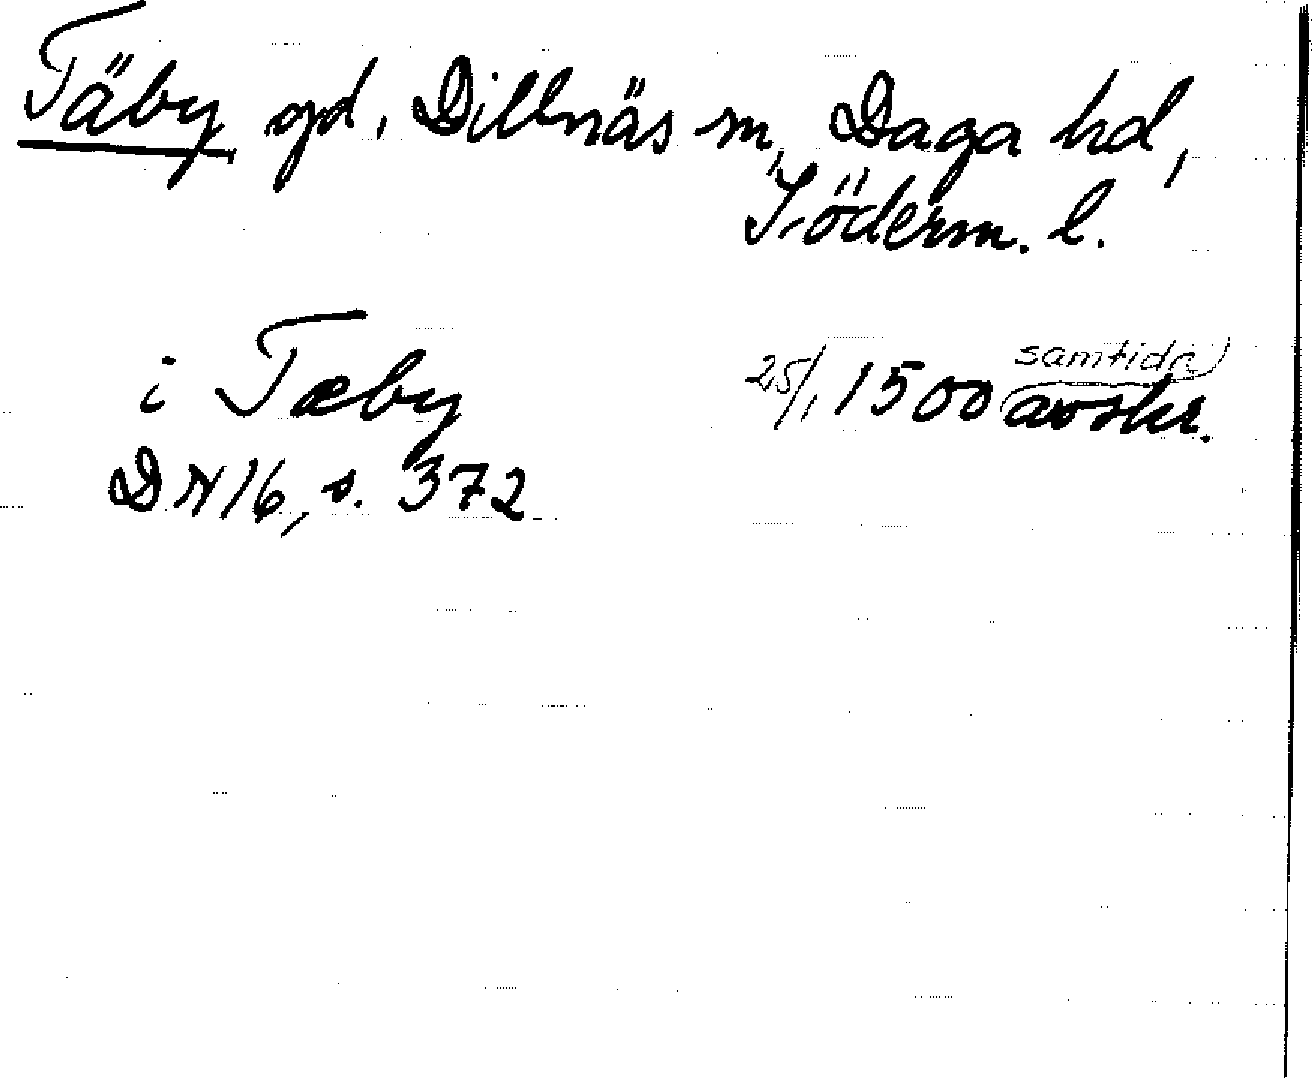 Täby gd, Dillnäs sn, Daga hd,
Söderm. l.
i Tæby 25/1 1500 samtida avskr.
DN 16, s. 372